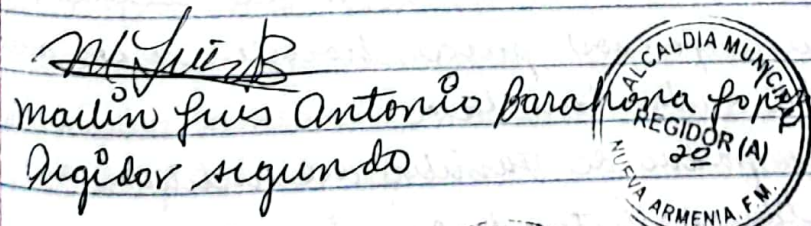 M Luis B
Martin Luis Antonio Barahona Lopez
Regidor segundo
ALCALDIA MUNICIPAL
REGIDOR (A)
2º
NUEVA ARMENIA, F.M.